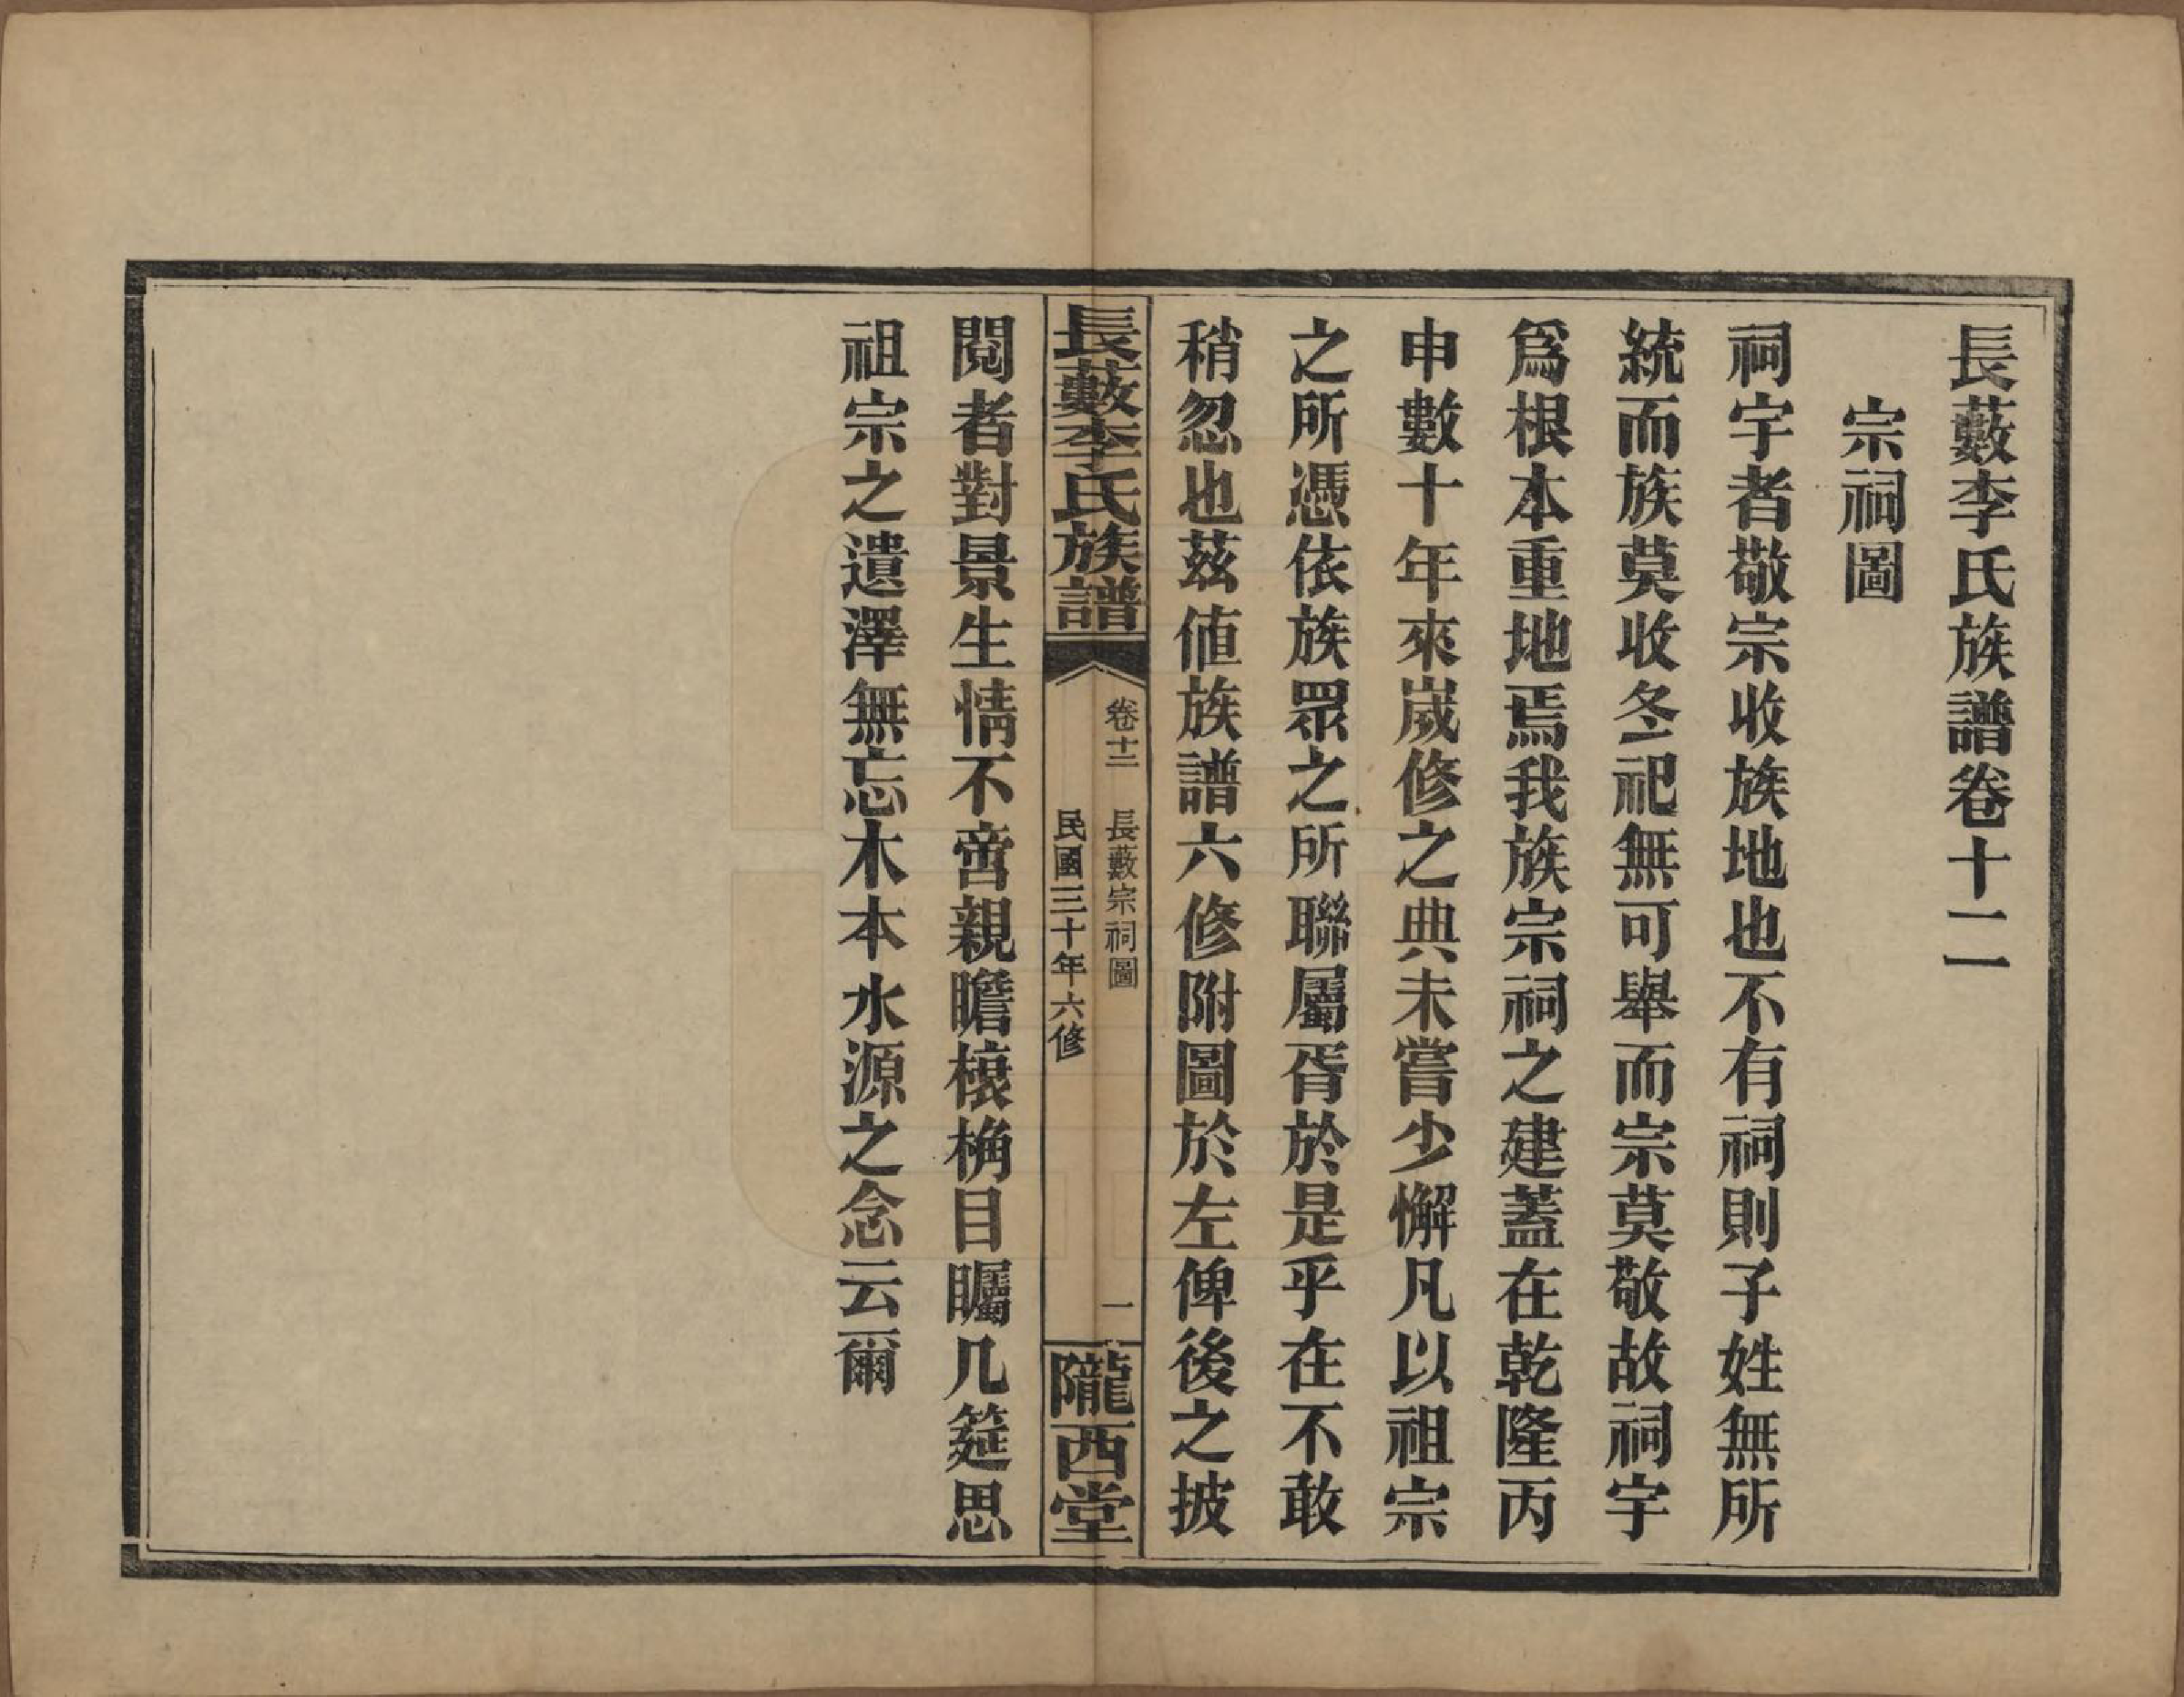 長藪李氏族譜卷十二
宗祠圖
祠宇者敬宗收族地也不有祠則子姓無所
統而族莫收冬祀無可舉而宗莫敬故祠宇
爲根本重地焉我族宗祠之建蓋在乾隆丙
申數十年來嵗修之典未嘗少懈凡以祖宗
之所憑依族眾之所聯屬胥於是乎在不敢
稍忽也茲値族譜六修附圖於左俾後之披
長藪李氏族譜
卷十二　長藪宗祠圖　一
民國三十年六修
隴西堂
閱者對景生情不啻親瞻榱桷目矚几筵思
祖宗之遺澤無忘木本水源之念云爾